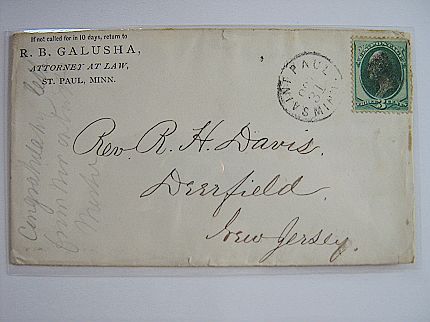 If not called for in 10 days, return to
R. B. GALUSHA,
ATTORNEY AT LAW,
ST. PAUL, MINN.
SAINT PAUL MINN.
31
THREE CENTS
Rev. R. H. Davis.
Deerfield,
New Jersey.
from